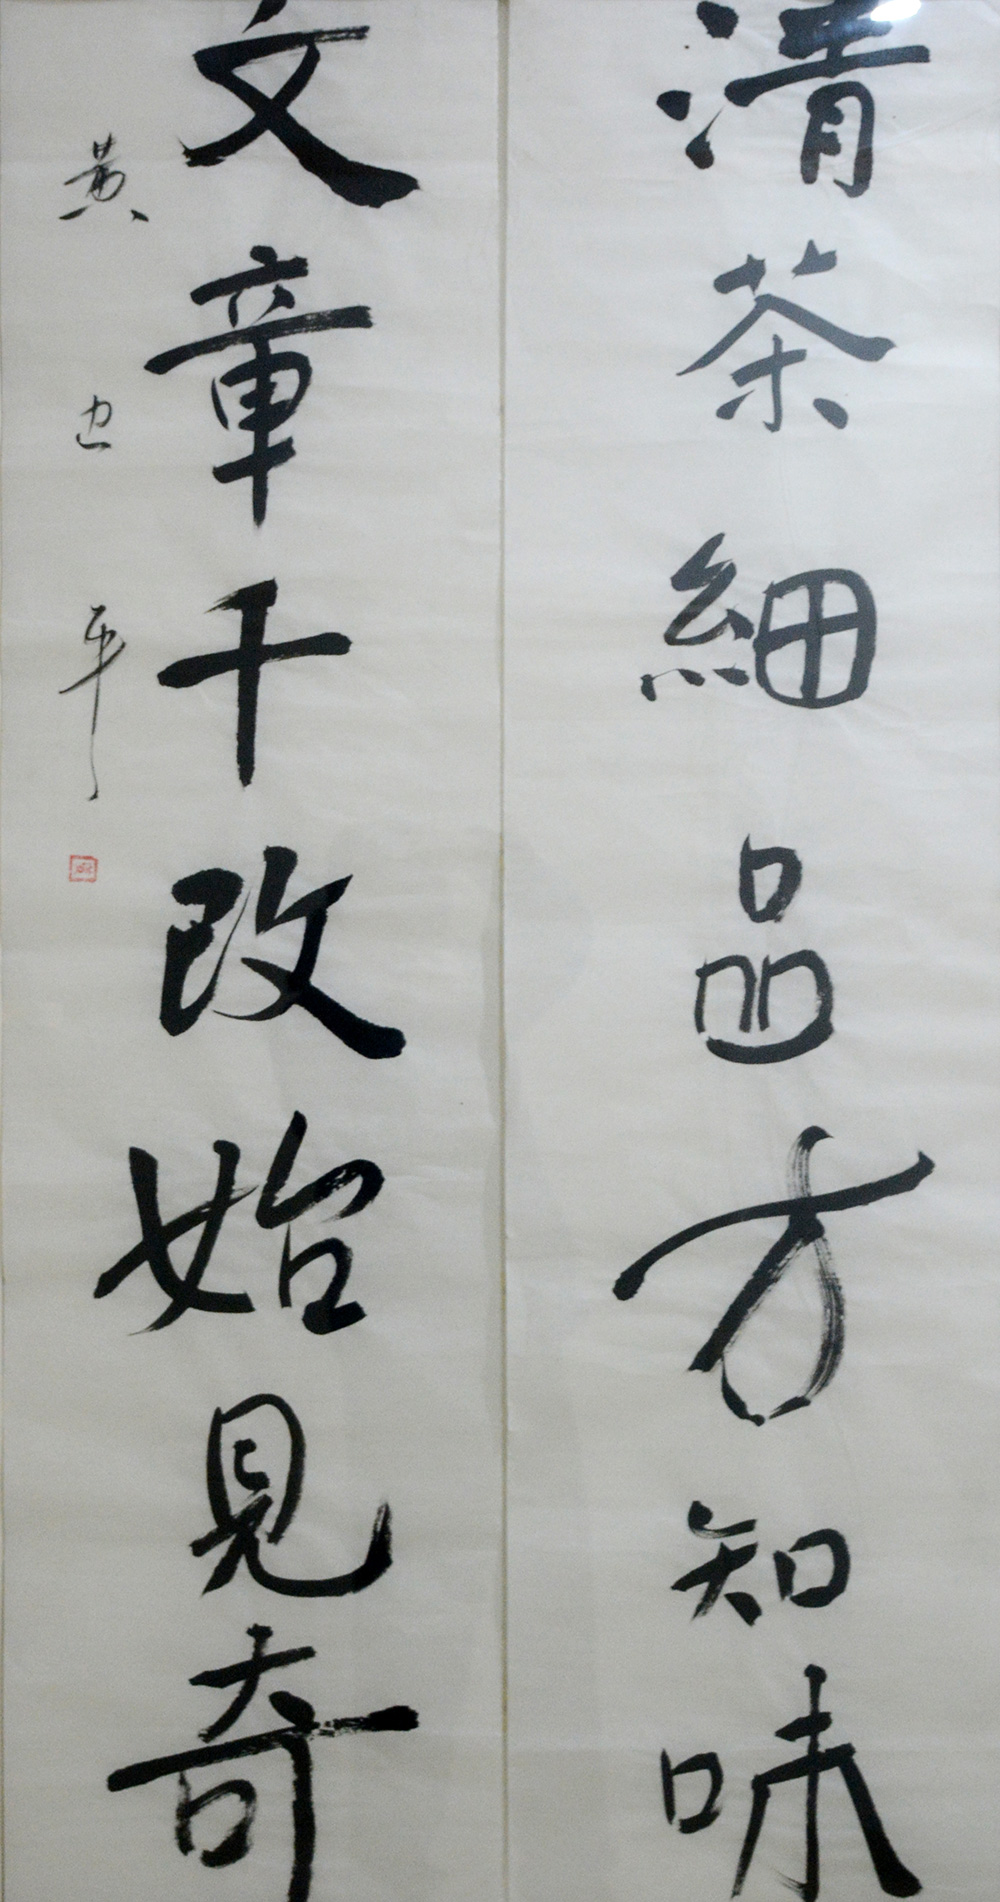 清茶細品方知味
文章千改始見奇
黄也平